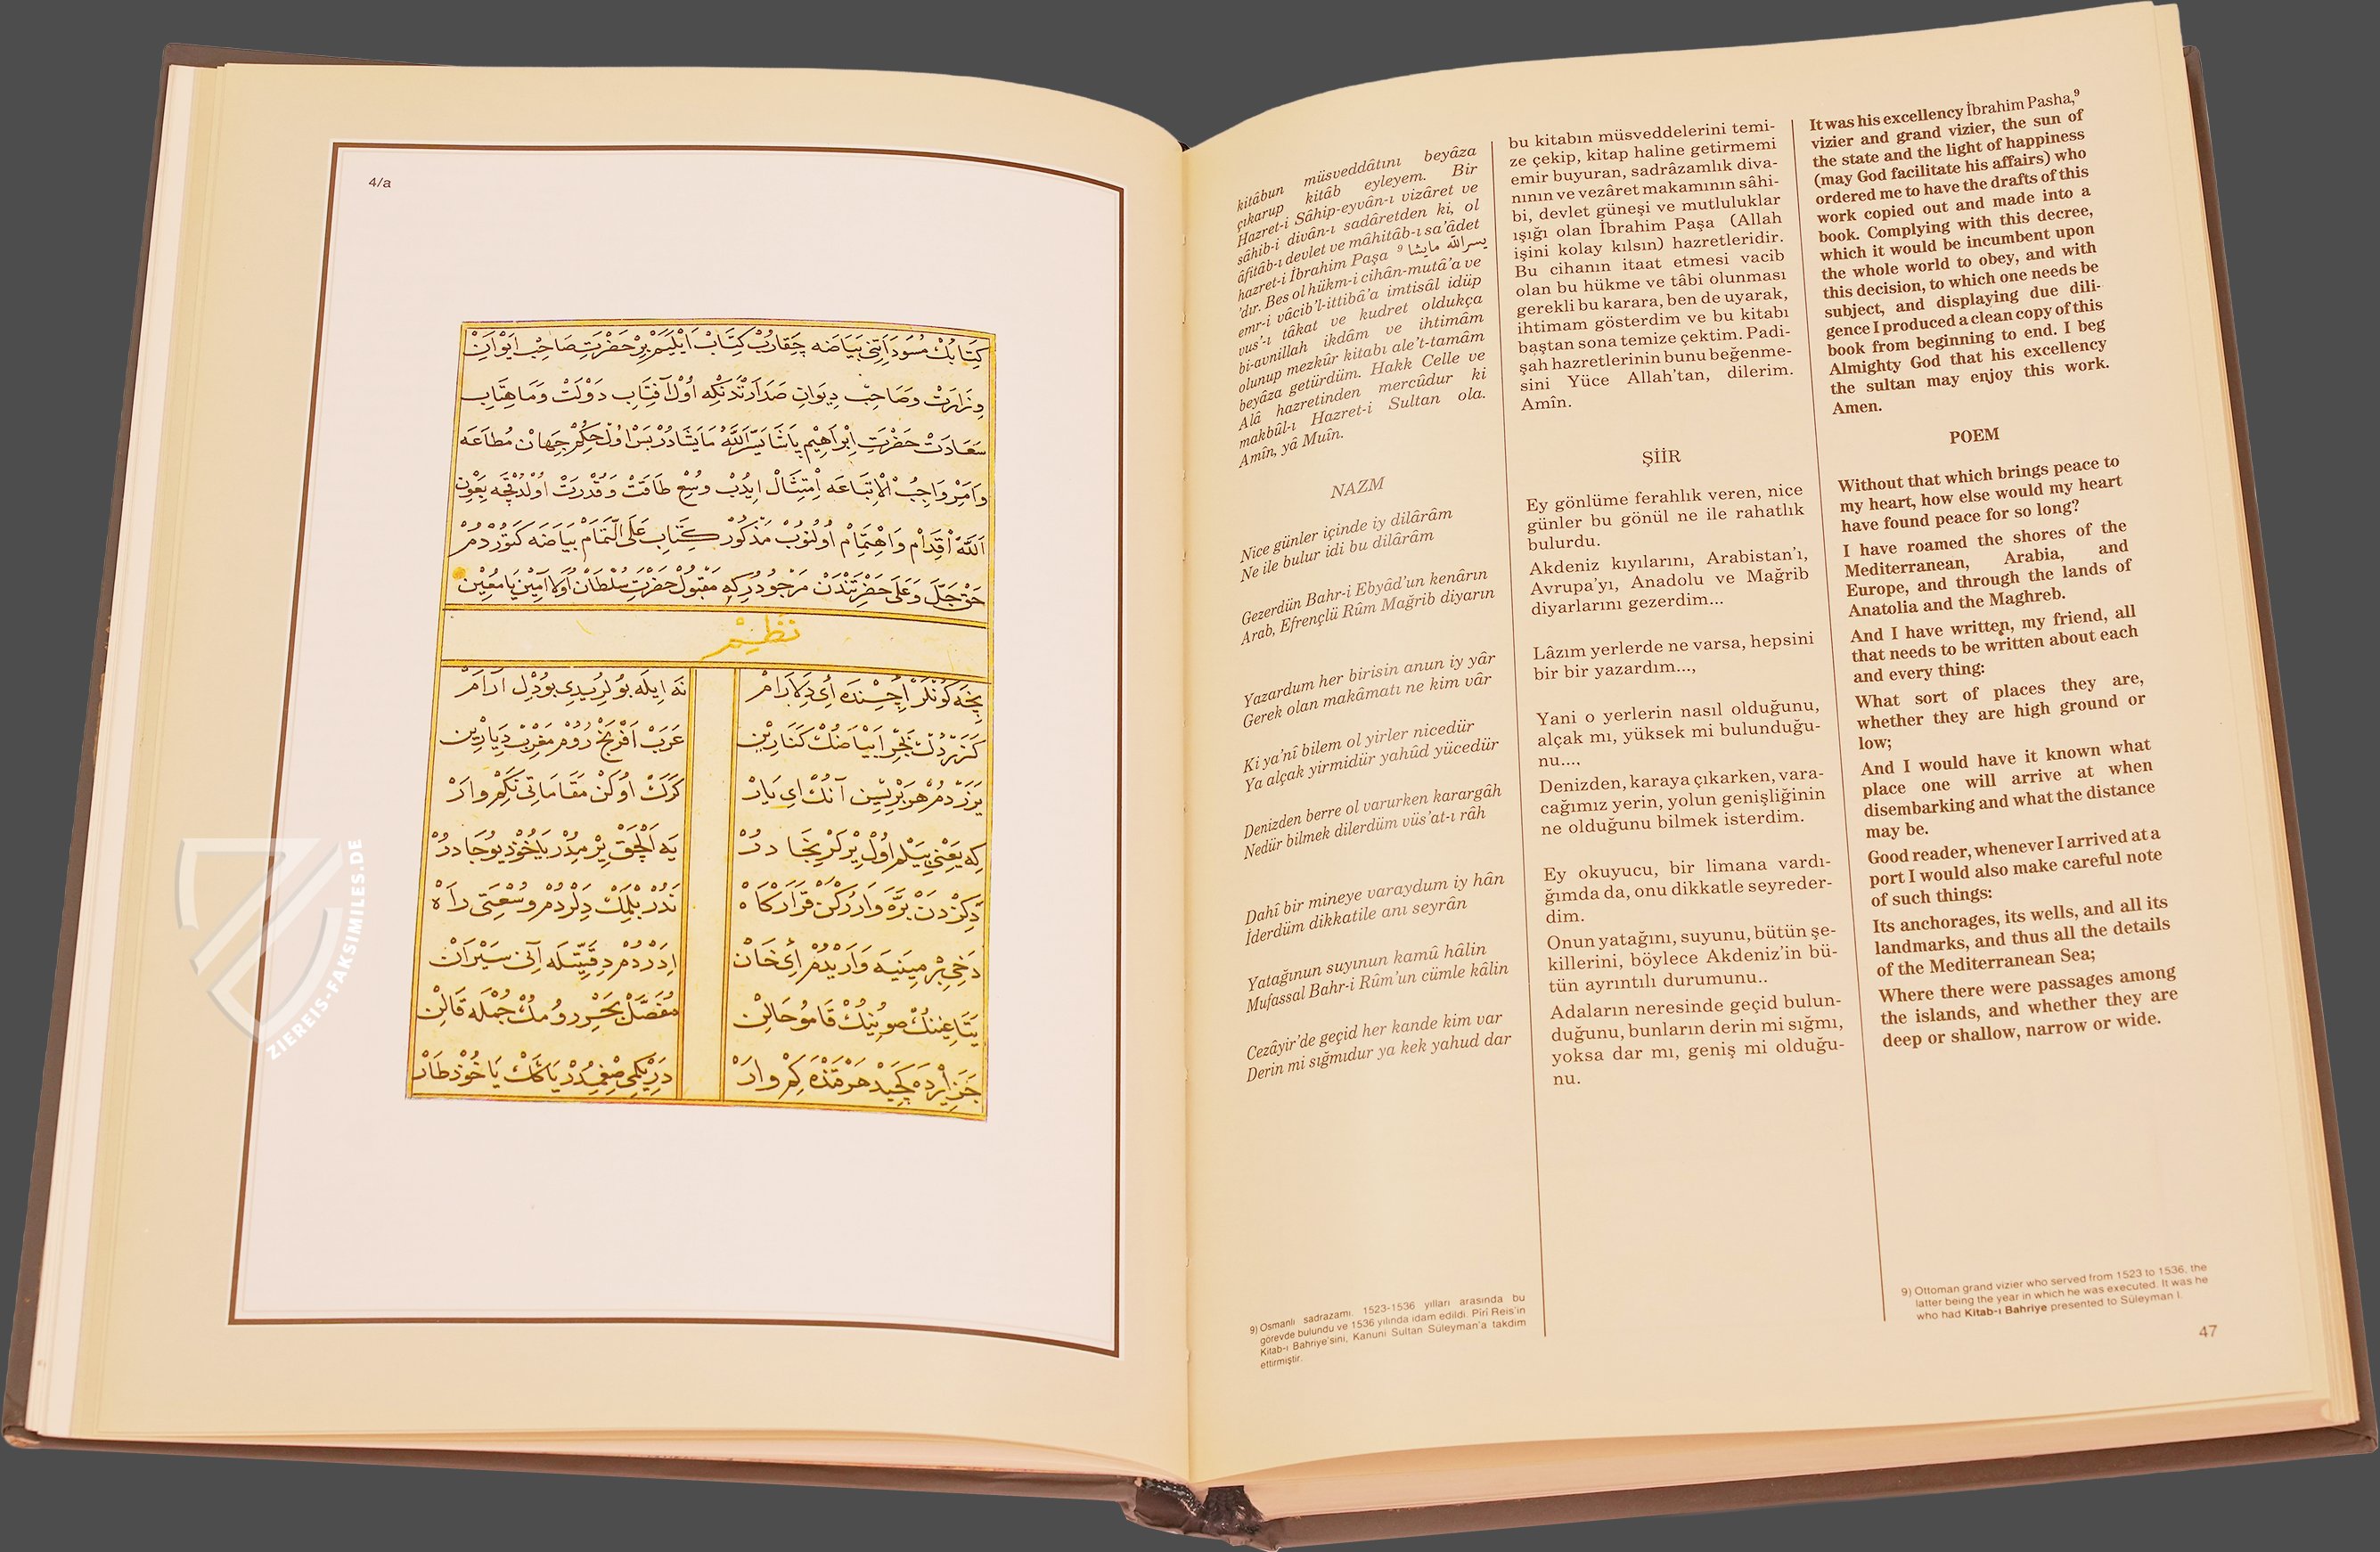 4/a
كتابك مسوداتنى بياضه چقارب كتاب ايليم بر حضرت صاحب ايوان
وزارت وصاحب ديوان صدارتدنكه اول آفتاب دولت وماهتاب
سعادت حضرت ابراهيم پاشا يسر الله مايشادر بس اول حكم جهان مطاعه
وامر واجب الاتباعه امتثال ايدب وسع طاقت وقدرت اولدقچه بعون
الله اقدام واهتمام اولنوب مذكور كتاب على التمام بياضه كتوردم
حق جل وعلى حضرتندن مرجودركه مقبول حضرت سلطان اولا آمين يا معين
نظم
نيجه كونلر ايچنده اى دلارام نه ايله بولريدى بو دل آرام
كزردك بحر ابياضك كنارين عرب افرنج روم مغرب ديارين
يزردم هر بريسين آنك اى يار كرك اولن مقاماتى نكم وار
كه يعنى بيلم اول يرلر نجادر يه الچق ير مدر ياخوذ يوجادر
دكزدن بره واررركن قراركاه ندر بلمك دلردم وسعتى راه
دخى بر مينيه واريدم اى خان ادردم دقيتله آنى سيران
يتاغننك صوينك قامو حالن مفصل بحر رومك جمله قالن
جزايرده كچيد هر قنده كم وار درنكمى صغمدر ياكك ياخوذ طار
kitâbun müsveddâtını beyâza
çıkarup kitâb eyleyem. Bir
Hazret-i Sâhip-eyvân-ı vizâret ve
sâhib-i divân-ı sadâretden ki, ol
âfitâb-ı devlet ve mâhitâb-ı sa'âdet
hazret-i İbrahim Paşa ⁹ يسرالله مايشا
'dır. Bes ol hükm-i cihân-mutâ'a ve
emr-i vâcib'l-ittibâ'a imtisâl idüp
vus'-ı tâkat ve kudret oldukça
bi-avnillah ikdâm ve ihtimâm
olunup mezkûr kitabı ale't-tamâm
beyâza getürdüm. Hakk Celle ve
Alâ hazretinden mercûdur ki
makbûl-ı Hazret-i Sultan ola.
Amîn, yâ Muîn.
NAZM
Nice günler içinde iy dilârâm
Ne ile bulur idi bu dilârâm
Gezerdün Bahr-i Ebyâd'un kenârın
Arab, Efrençlü Rûm Mağrib diyarın
Yazardum her birisin anun iy yâr
Gerek olan makâmatı ne kim vâr
Ki ya'nî bilem ol yirler nicedür
Ya alçak yirmidür yahûd yücedür
Denizden berre ol varurken karargâh
Nedür bilmek dilerdüm vüs'at-ı râh
Dahî bir mineye varaydum iy hân
İderdüm dikkatile anı seyrân
Yatağınun suyınun kamû hâlin
Mufassal Bahr-i Rûm'un cümle kâlin
Cezâyir'de geçid her kande kim var
Derin mi sığmıdur ya kek yahud dar
9) Osmanlı sadrazamı. 1523-1536 yılları arasında bu
görevde bulundu ve 1536 yılında idam edildi. Pîrî Reis'in
Kitab-ı Bahriye'sini, Kanuni Sultan Süleyman'a takdim
ettirmiştir.
bu kitabın müsveddelerini temi-
ze çekip, kitap haline getirmemi
emir buyuran, sadrâzamlık diva-
nının ve vezâret makamının sâhi-
bi, devlet güneşi ve mutluluklar
ışığı olan İbrahim Paşa (Allah
işini kolay kılsın) hazretleridir.
Bu cihanın itaat etmesi vacib
olan bu hükme ve tâbi olunması
gerekli bu karara, ben de uyarak,
ihtimam gösterdim ve bu kitabı
baştan sona temize çektim. Padi-
şah hazretlerinin bunu beğenme-
sini Yüce Allah'tan, dilerim.
Amîn.
ŞİİR
Ey gönlüme ferahlık veren, nice
günler bu gönül ne ile rahatlık
bulurdu.
Akdeniz kıyılarını, Arabistan'ı,
Avrupa'yı, Anadolu ve Mağrib
diyarlarını gezerdim...
Lâzım yerlerde ne varsa, hepsini
bir bir yazardım...,
Yani o yerlerin nasıl olduğunu,
alçak mı, yüksek mi bulunduğu-
nu...,
Denizden, karaya çıkarken, vara-
cağımız yerin, yolun genişliğinin
ne olduğunu bilmek isterdim.
Ey okuyucu, bir limana vardı-
ğımda da, onu dikkatle seyreder-
dim.
Onun yatağını, suyunu, bütün şe-
killerini, böylece Akdeniz'in bü-
tün ayrıntılı durumunu..
Adaların neresinde geçid bulun-
duğunu, bunların derin mi sığmı,
yoksa dar mı, geniş mi olduğu-
nu.
It was his excellency İbrahim Pasha,⁹
vizier and grand vizier, the sun of
the state and the light of happiness
(may God facilitate his affairs) who
ordered me to have the drafts of this
work copied out and made into a
book. Complying with this decree,
which it would be incumbent upon
the whole world to obey, and with
this decision, to which one needs be
subject, and displaying due dili-
gence I produced a clean copy of this
book from beginning to end. I beg
Almighty God that his excellency
the sultan may enjoy this work.
Amen.
POEM
Without that which brings peace to
my heart, how else would my heart
have found peace for so long?
I have roamed the shores of the
Mediterranean, Arabia, and
Europe, and through the lands of
Anatolia and the Maghreb.
And I have written, my friend, all
that needs to be written about each
and every thing:
What sort of places they are,
whether they are high ground or
low;
And I would have it known what
place one will arrive at when
disembarking and what the distance
may be.
Good reader, whenever I arrived at a
port I would also make careful note
of such things:
Its anchorages, its wells, and all its
landmarks, and thus all the details
of the Mediterranean Sea;
Where there were passages among
the islands, and whether they are
deep or shallow, narrow or wide.
9) Ottoman grand vizier who served from 1523 to 1536, the
latter being the year in which he was executed. It was he
who had Kitab-ı Bahriye presented to Süleyman I.
47
ZIEREIS-FAKSIMILES.DE